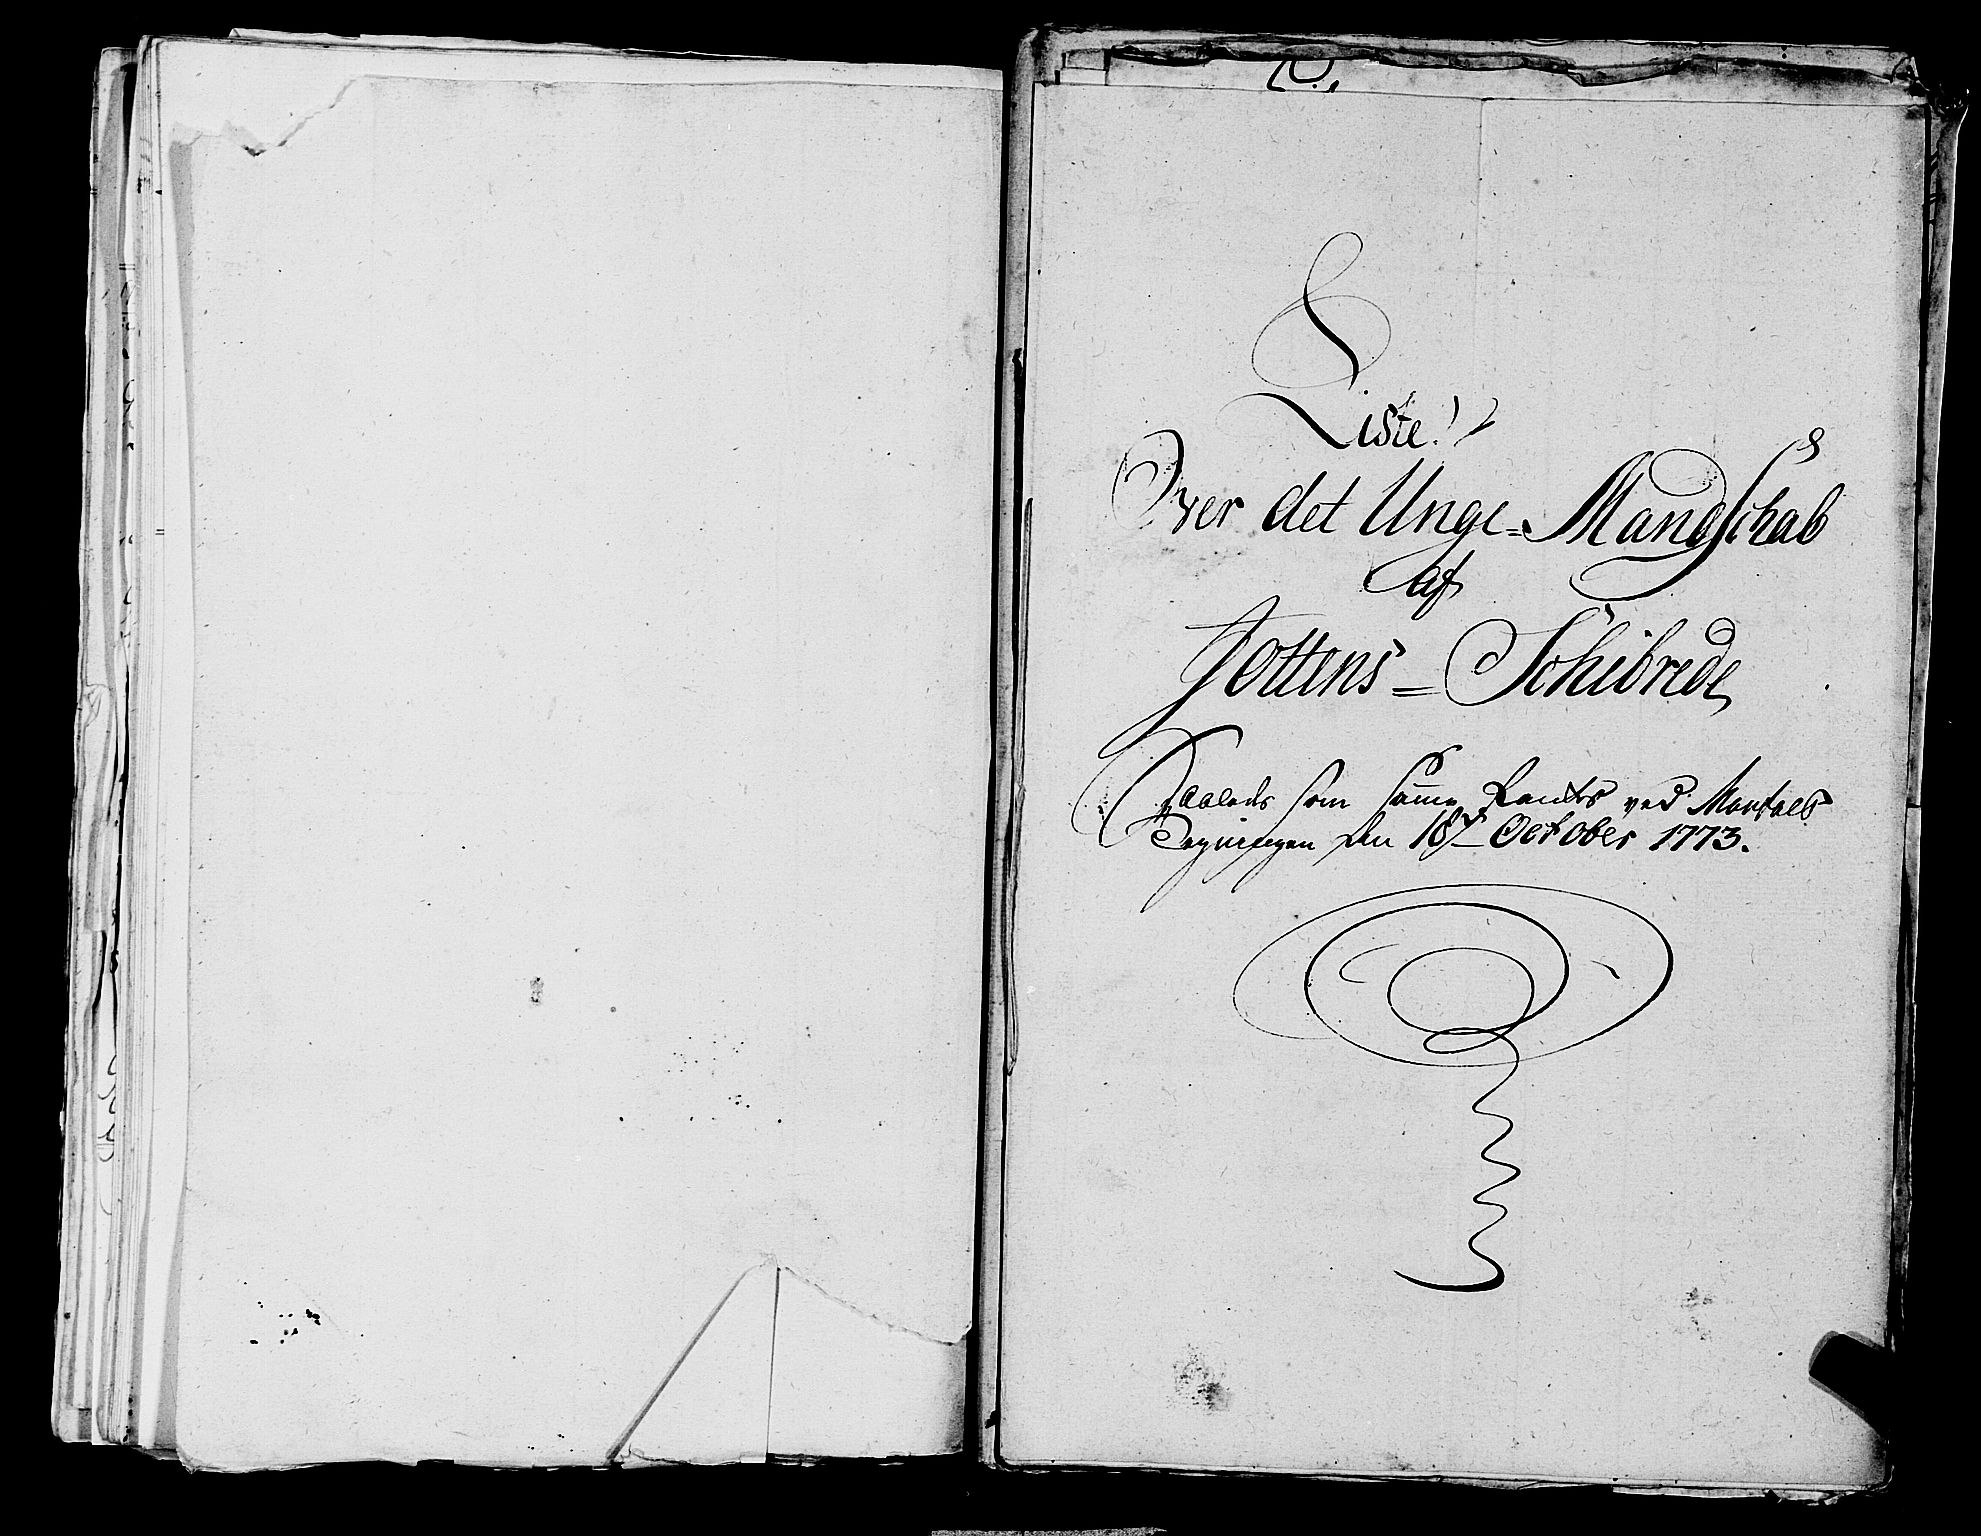 Liste!
Over det Unge=Mandschab
af
Jottens=Schibrede
Saaledes som samme fandtes ved Mandtals
Tegningen den 18de October 1773.